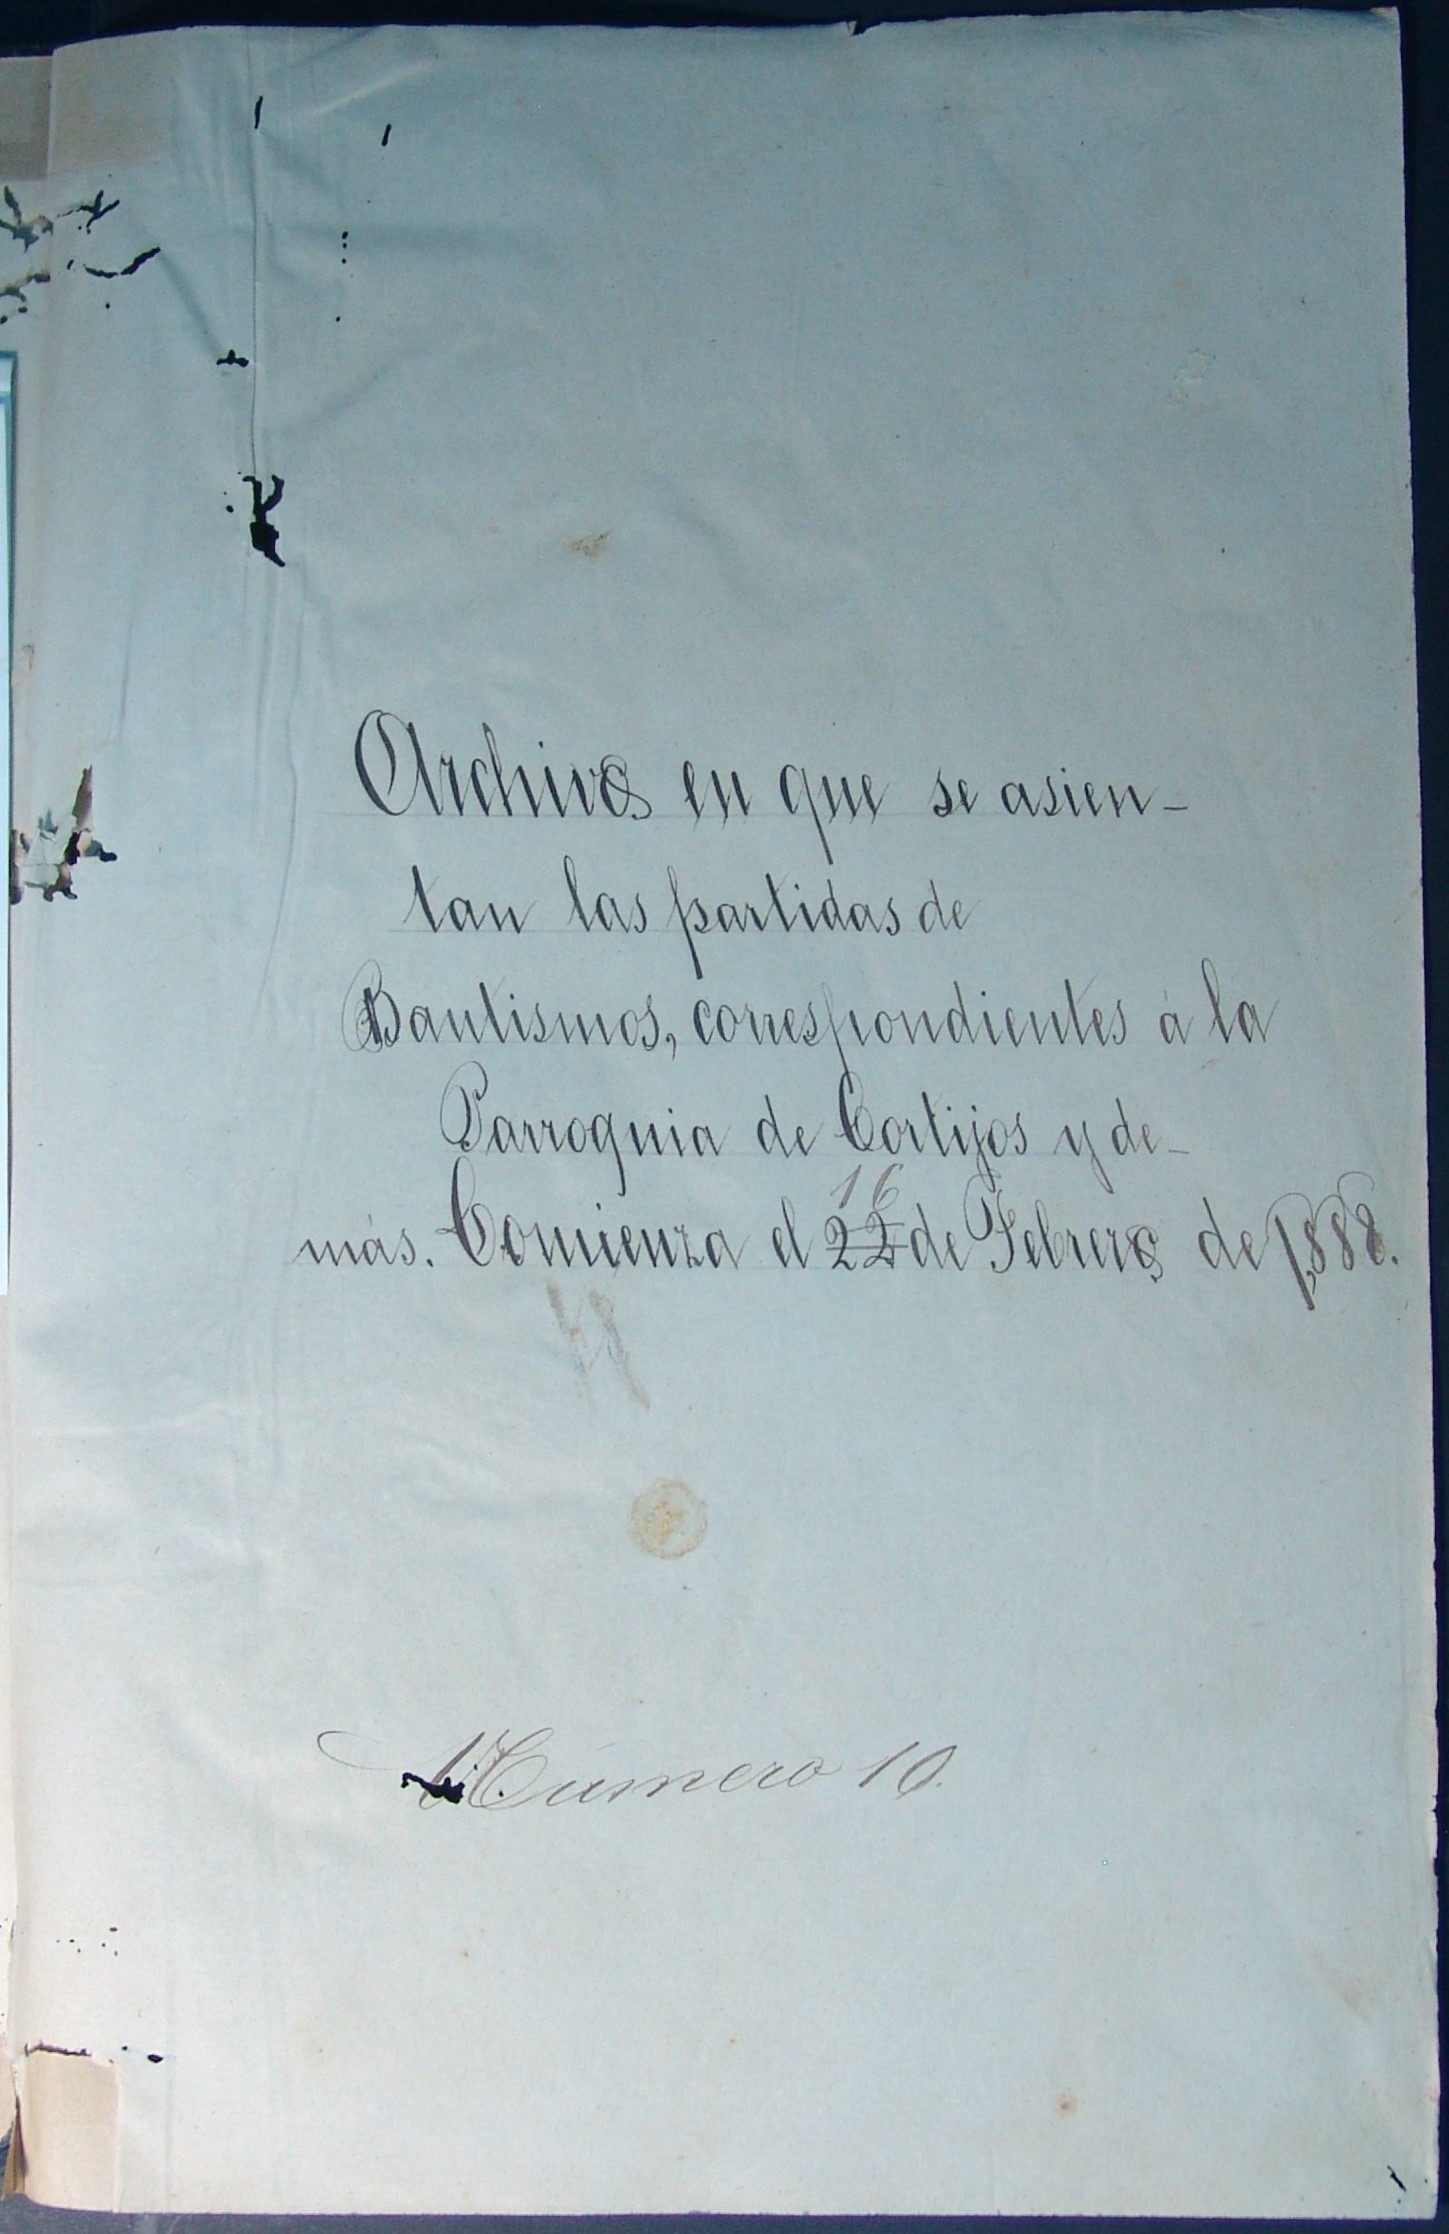 Archivo en que se asien-
tan las partidas de
Bautismos, correspondientes á la
Parroquia de Cortijos y de-
16
más. Comienza el 22 de Febrero de 1,888.
Número 10.